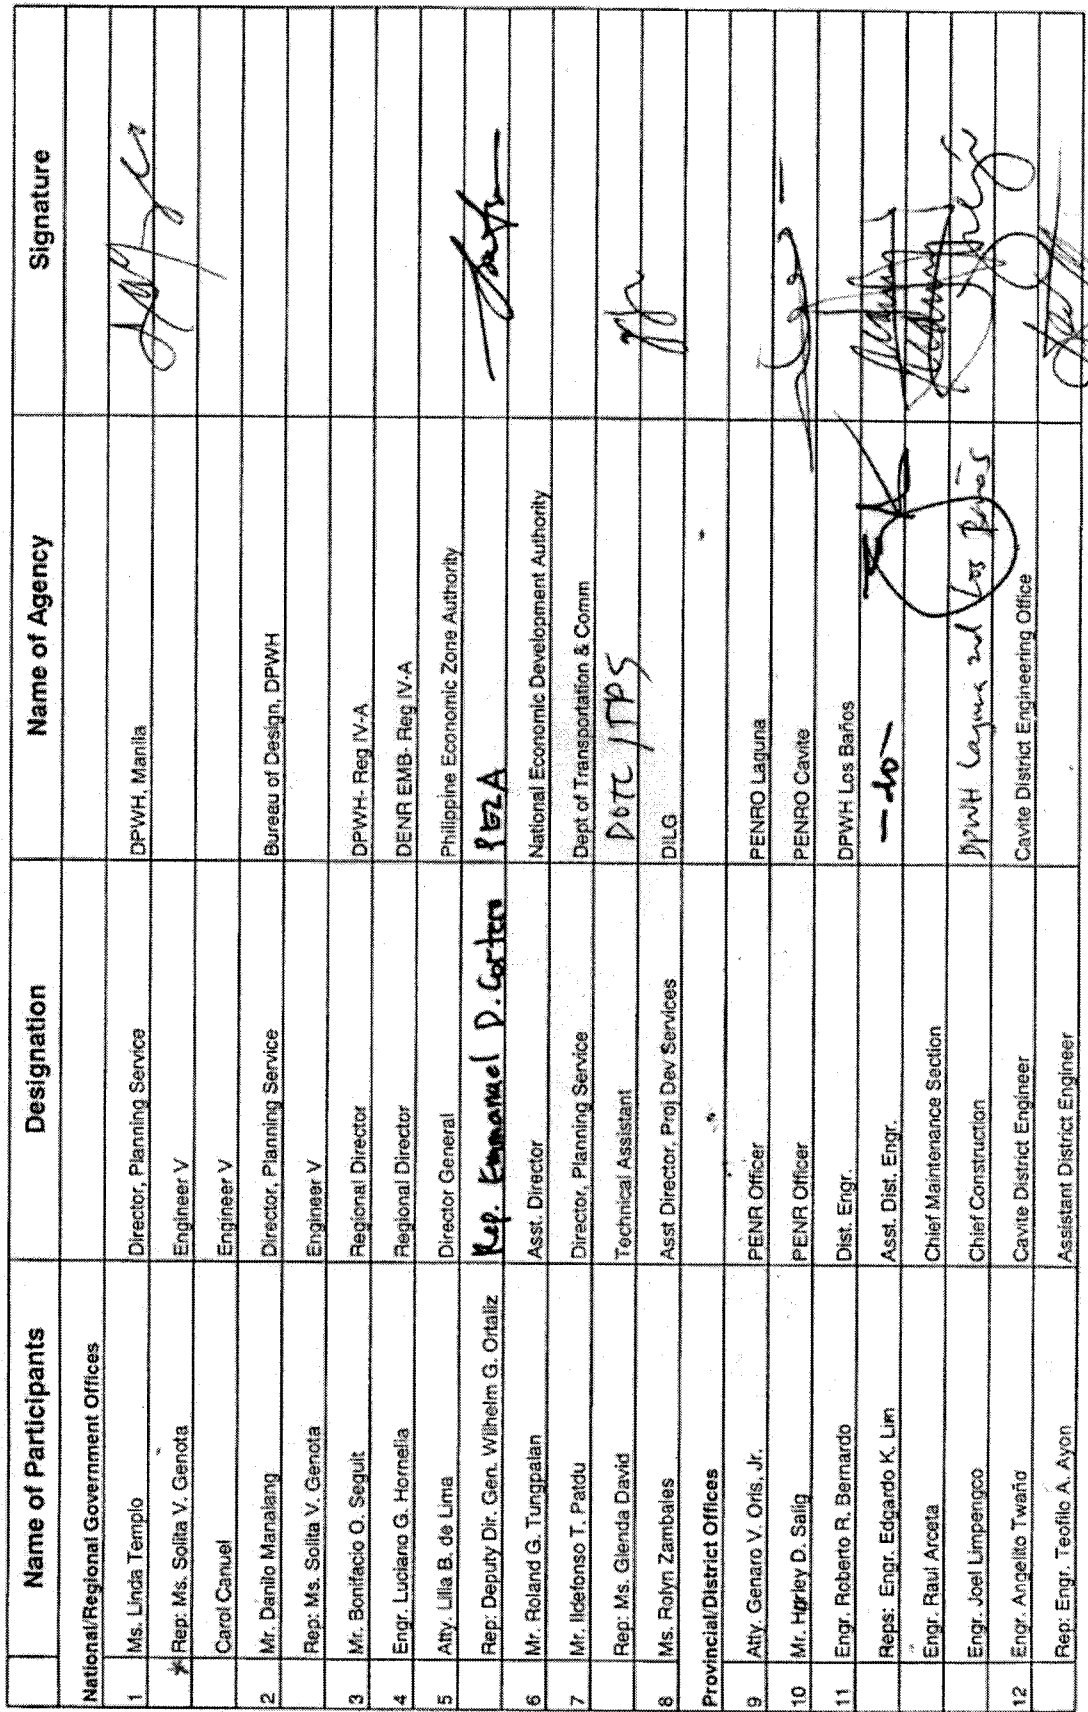 Name of Participants Designation Name of Agency Signature
National/Regional Government Offices
1 Ms. Linda Templo Director, Planning Service DPWH, Manila
* Rep: Ms. Solita V. Genota Engineer V
Carol Canuel Engineer V
2 Mr. Danilo Manalang Director, Planning Service Bureau of Design, DPWH
Rep: Ms. Solita V. Genota Engineer V
3 Mr. Bonifacio O. Seguit Regional Director DPWH- Reg IV-A
4 Engr. Luciano G. Hornella Regional Director DENR EMB- Reg IV-A
5 Atty. Lilia B. de Lima Director General Philippine Economic Zone Authority
Rep: Deputy Dir. Gen. Wilhelm G. Ortaliz Rep. Emmanuel D. Cortero PEZA
6 Mr. Roland G. Tungpalan Asst. Director National Economic Development Authority
7 Mr. Ildefonso T. Patdu Director, Planning Service Dept of Transportation & Comm
Rep: Ms. Glenda David Technical Assistant DOTC / TPS
8 Ms. Rolyn Zambales Asst Director, Proj Dev Services DILG
Provincial/District Offices
9 Atty. Genaro V. Oris, Jr. PENR Officer PENRO Laguna
10 Mr. Horley D. Salig PENR Officer PENRO Cavite
11 Engr. Roberto R. Bernardo Dist. Engr. DPWH Los Baños
Reps: Engr. Edgardo K. Lim Asst. Dist. Engr. - do -
Engr. Raul Arceta Chief Maintenance Section
Engr. Joel Limpengco Chief Construction DPWH Laguna and Los Baños
12 Engr. Angelito Twaño Cavite District Engineer Cavite District Engineering Office
Rep: Engr. Teofilo A. Ayon Assistant District Engineer